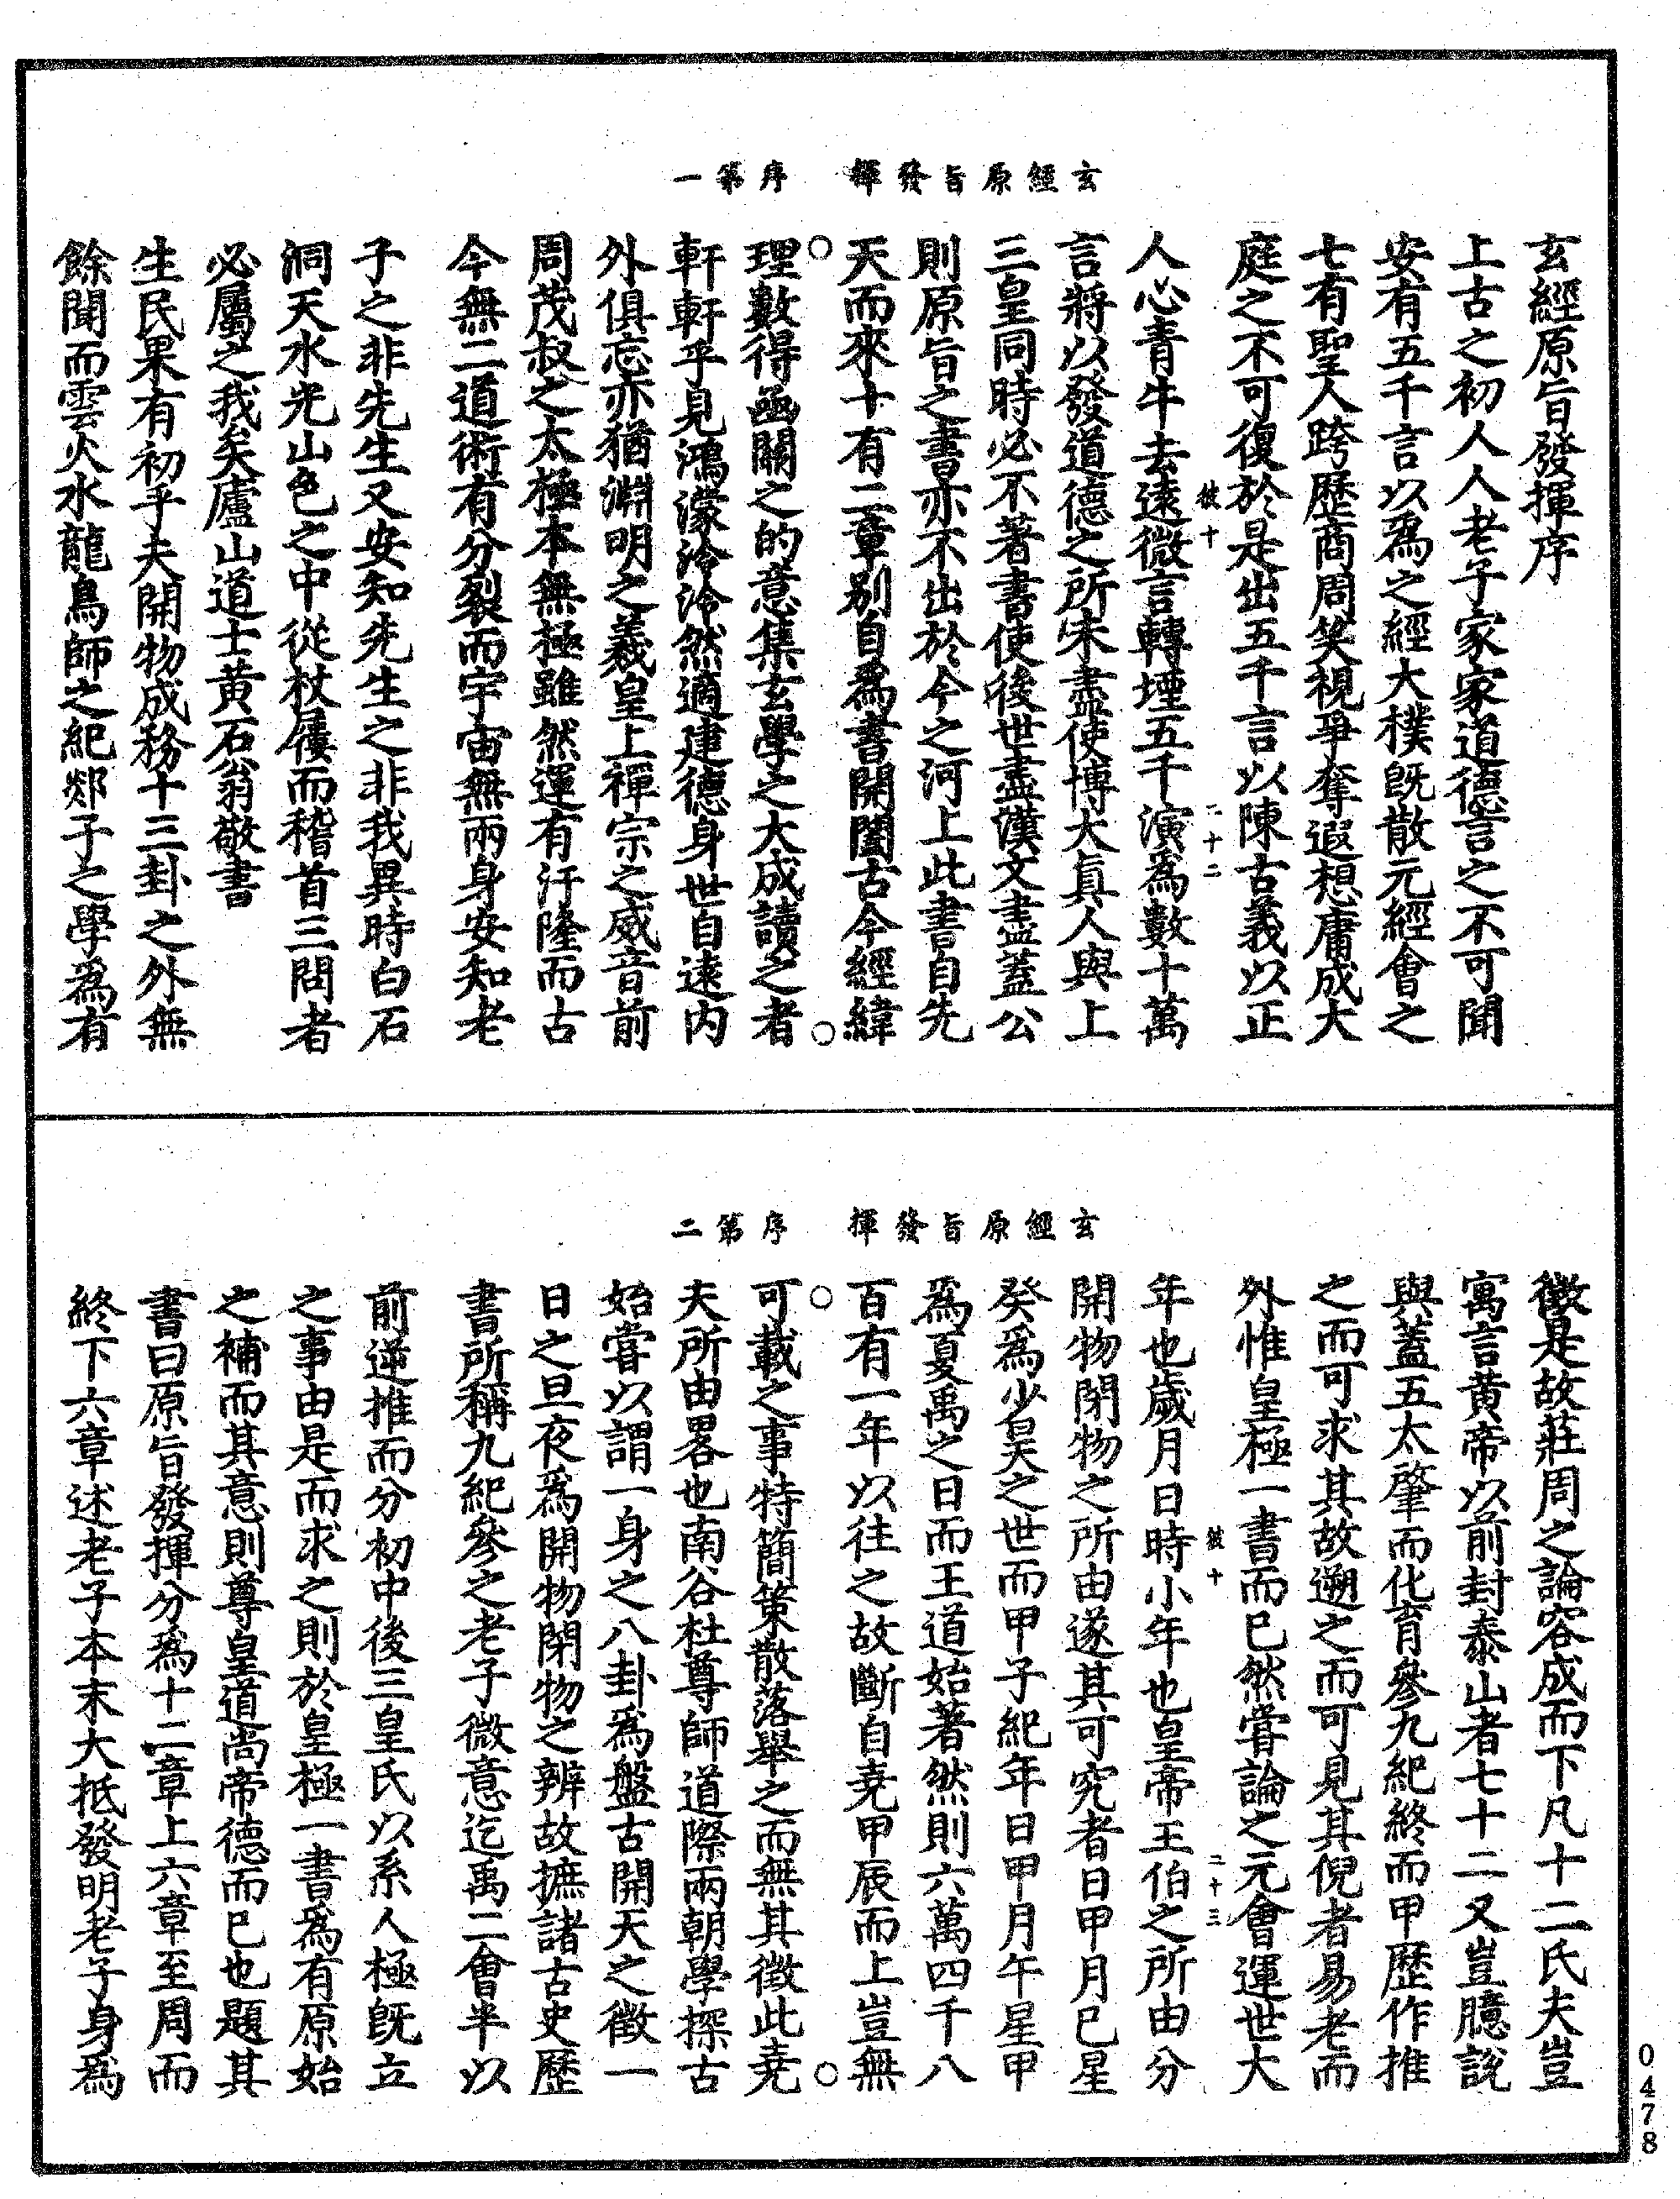 玄經原旨發揮　序第一
玄經原旨發揮序
上古之初人人老子家家道德言之不可聞
安有五千言以爲之經大樸旣散元經會之
七有聖人跨歷商周笑視爭奪遐想庸成大
庭之不可復於是出五千言以陳古義以正
彼十
二十二
人心青牛去遠微言轉堙五千演爲數十萬
言將以發道德之所未盡使博大眞人與上
三皇同時必不著書書使後世盡漢文盡蓋公
則原旨之書亦不出於今之河上此書自先
天而來十有二章别自爲書開闔古今經緯
理數得函關之的意集玄學之大成讀之者
軒軒乎見鴻濛泠泠然適建德身世自遠内
外俱忘亦猶淵明之羲皇上禪宗之威音前
周茂叔之太極本無極雖然運有汙隆而古
今無二道術有分裂而宇宙無兩身安知老
子之非先生又安知先生之非我異時白石
洞天水光山色之中從杖屨而稽首三問者
必屬之我矣廬山道士黄石翁敬書
生民果有初乎夫開物成務十三卦之外無
餘聞而雲火水龍鳥師之紀郯子之學爲有
玄經原旨發揮　序第二
徵是故莊周之論容成而下凡十二氏夫豈
寓言黄帝以前封泰山者七十二又豈臆說
與蓋五太肇而化育參九紀終而甲歷作推
之而可求其故遡之而可見其倪者易老而
外惟皇極一書而已然嘗論之元會運世大
彼十
二十三
年也歲月日時小年也皇帝王伯之所由分
開物閉物之所由遂其可究者日甲月巳星
癸爲少昊之世而甲子紀年日甲月午星甲
爲夏禹之日而王道始著然則六萬四千八
百有一年以往之故斷自堯甲辰而上豈無
可載之事特簡策散落舉之而無其徵此堯
夫所由畧也南谷杜尊師道際兩朝學探古
始嘗以謂一身之八卦爲盤古開天之徵一
日之旦夜爲開物閉物之辨故摭諸古史歷
書所稱九紀參之老子微意迄禹二會半以
前逆推而分初中後三皇氏以系人極旣立
之事由是而求之則於皇極一書爲有原始
之補而其意則尊皇道尚帝德而已也題其
書曰原旨發揮分爲十二章上六章至周而
終下六章述老子本末大抵發明老子身爲
0478